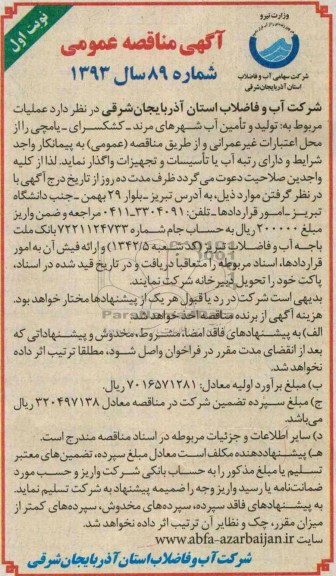 نوبت اول
وزارت نیرو
شرکت سهامی آب و فاضلاب
استان آذربایجان شرقی
آگهی مناقصه عمومی
شماره ۸۹ سال ۱۳۹۳
شرکت آب و فاضلاب استان آذربایجان شرقی در نظر دارد عملیات
مربوط به: تولید و تأمین آب شهرهای مرند ـ کشکسرای ـ یامچی را از
محل اعتبارات غیرعمرانی و از طریق مناقصه (عمومی) به پیمانکار واجد
شرایط و دارای رتبه آب یا تأسیسات و تجهیزات واگذار نماید. لذا از کلیه
واجدین صلاحیت دعوت می‌گردد ظرف مدت ده روز از تاریخ درج آگهی با
در نظر گرفتن موارد ذیل، به آدرس تبریز ـ بلوار ۲۹ بهمن ـ جنب دانشگاه
تبریز ـ امور قراردادها ـ تلفن: ۳۳۰۴۰۹۱ـ۰۴۱۱ مراجعه و ضمن واریز
مبلغ ۲۰۰۰۰۰ ریال به حساب جام شماره ۷۲۲۱۱۲۴۷۳۳ بانک ملت
باجه آب و فاضلاب (کد شعبه ۱۳۴۲/۵) و ارائه فیش آن به امور
قراردادها، اسناد مربوطه را متعاقباً دریافت و در تاریخ قید شده در اسناد،
پاکت خود را تحویل دبیرخانه شرکت نمایند.
بدیهی است شرکت در رد یا قبول هر یک از پیشنهادها مختار خواهد بود.
هزینه آگهی از برنده مناقصه اخذ خواهد شد.
الف) به پیشنهادهای فاقد امضا، مشروط، مخدوش و پیشنهاداتی که
بعد از انقضای مدت مقرر در فراخوان واصل شود، مطلقا ترتیب اثر داده
نخواهد شد.
ب) مبلغ برآورد اولیه معادل: ۷۰۱۶۵۷۱۲۸۱ ریال.
ج) مبلغ سپرده تضمین شرکت در مناقصه معادل ۳۲۰۴۹۷۱۳۸ ریال
می‌باشد.
د) سایر اطلاعات و جزئیات مربوطه در اسناد مناقصه مندرج است.
هـ) پیشنهاددهنده مکلف است معادل مبلغ سپرده، تضمین‌های معتبر
تسلیم یا مبلغ مذکور را به حساب بانکی شرکت واریز و حسب مورد
ضمانت‌نامه یا رسید واریز وجه را ضمیمه پیشنهاد به شرکت تسلیم نماید.
به پیشنهادهای فاقد سپرده، سپرده‌های مخدوش، سپرده‌های کمتر از
میزان مقرر، چک و نظایر آن ترتیب اثر داده نخواهد شد.
سایت www.abfa-azarbaijan.ir
شرکت آب و فاضلاب استان آذربایجان شرقی